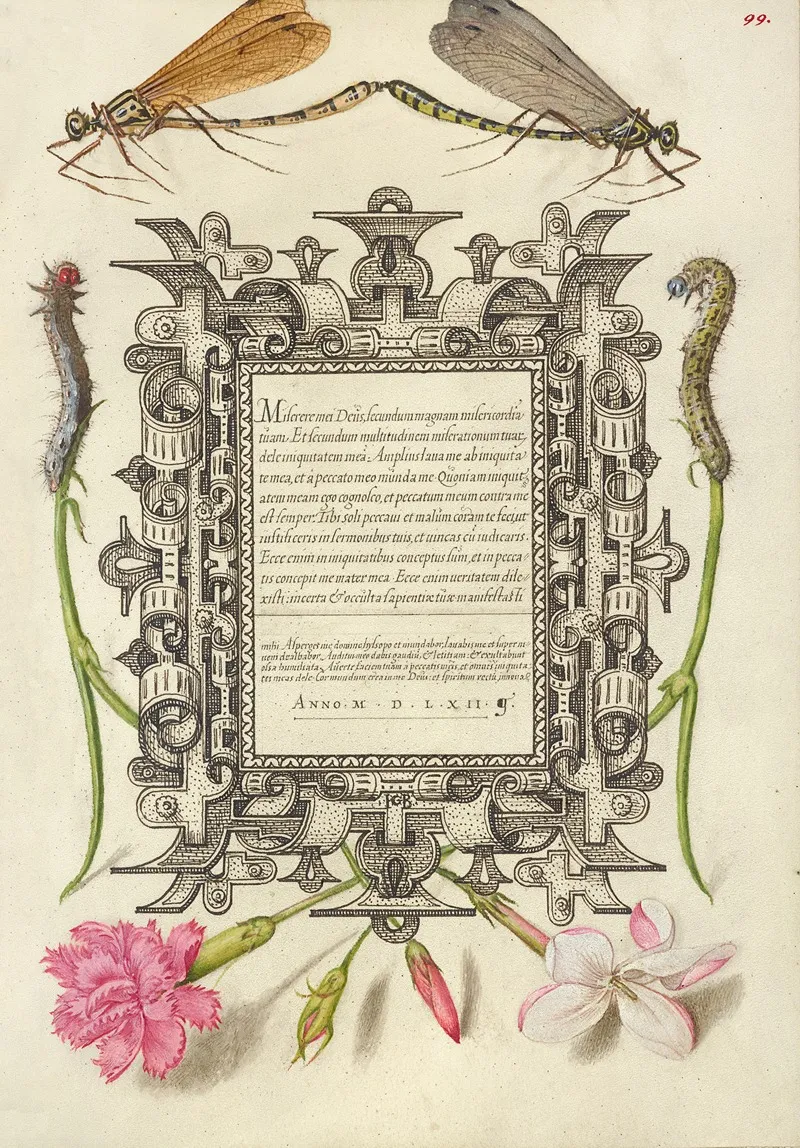 99.
Miserere mei Deus, secundum magnam misericordiā
tuam. Et secundum multitudinem miserationum tuar̄,
dele iniquitatem meā. Amplius laua me ab iniquita
te mea, et à peccato meo munda me. Quoniam iniquit
atem meam ego cognosco, et peccatum meum contra me
est semper. Tibi soli peccaui et malum coram te feci, ut
iustificeris in sermonibus tuis, et uincas cū iudicaris.
Ecce enim in iniquitatibus conceptus sum, et in pecca-
tis concepit me mater mea. Ecce enim ueritatem dile-
xisti: incerta & occulta sapientiæ tuæ manifestasti
mihi. Asperges me domine hysopo et mundabor, lauabis me et super ni-
uem dealbabor. Auditui meo dabis gaudiū, & letitiam: & exultabunt
ossa humiliata. Auerte faciem tuam à peccatis meis, et omnes iniquita
tes meas dele. Cor mundum crea in me Deus: et spiritum rectū innoua.
ANNO. M. D. L. X II. g.